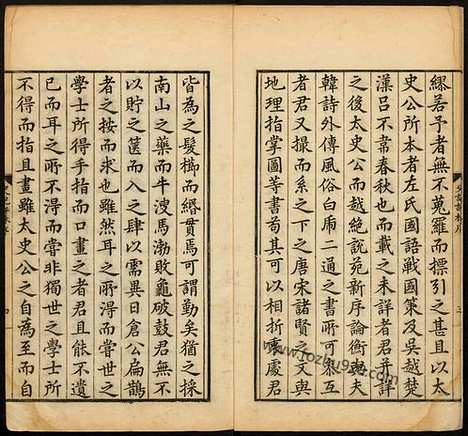 繆若予者無不蒐羅而標引之甚且以太
史公所本者左氏國語戰國策及吳越楚
漢呂不韋春秋也而載之未詳者君并詳
之後太史公而越絕說苑新序論衡與夫
韓詩外傳風俗白虎二通之書所可參互
者君又撮而系之下之唐宋諸賢之文與
地理指掌圖等書可以相折衷處君
皆為之髮櫛而縷貫焉可謂勤矣猶之採
南山之藥而牛溲馬勃敗龜破鼓君無不
以貯之篋而入之肆以需異日倉公扁鵲
者之按而求也雖然耳之所得而嘗世之
學士所得手指而口畫之者君且能不遺
已而耳之所不得而嘗非獨世之學士所
不得而指且畫雖太史公之自為至而自